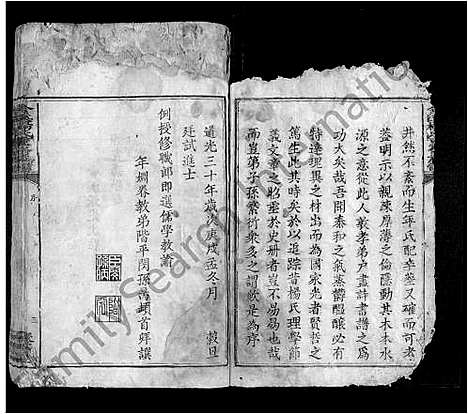 井然不紊而生年氏配卒塋又確而可考
蓋明示以親疎厚薄之倫隱動其木本水
源之意從此人敦孝弟户晝詩書譜之爲
功大矣哉吾聞泰和之氣蒸欝醖釀必有
特達理異之材出而為國家光者賢哲之
篤生此其時矣於以追踪昔楊氏理學節
義文章之昭垂於史册者豈不易易哉去
而豈第子孫蕃衍衆多之謂歟是為序
道光三十年歲次庚戌孟冬月 穀旦
廷試進士
例授修職郎即選儒學教諭
年姻眷教弟階平閔孫萬頓首拜譔
FamilySearch International